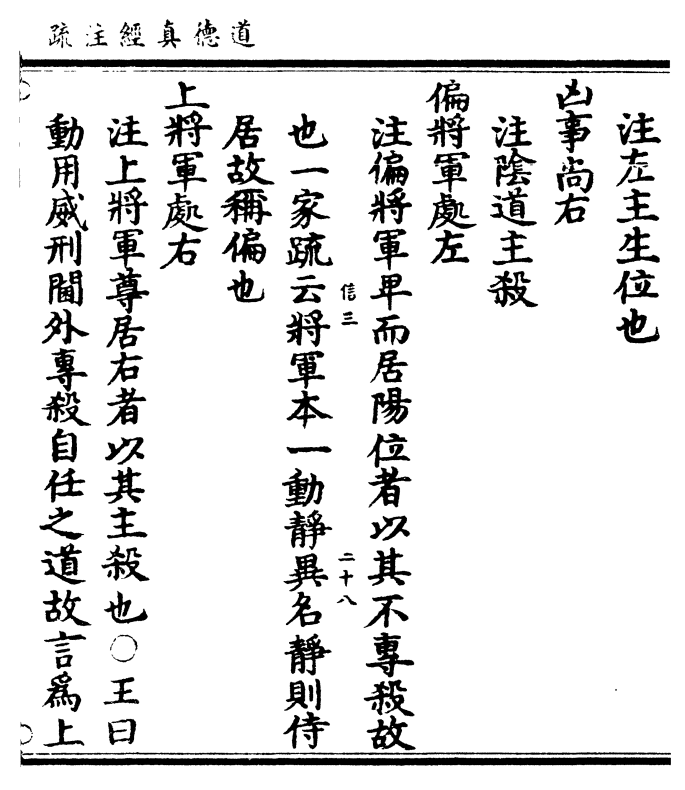 道德真經注疏
注左主生位也
凶事尚右
注陰道主殺
偏將軍處左
注偏將軍卑而居陽位者以其不專殺故
信三
二十八
也一家疏云將軍本一動靜異名靜則侍
居故稱偏也
上將軍處右
注上將軍尊居右者以其主殺也○王曰
動用威刑閫外專殺自任之道故言爲上